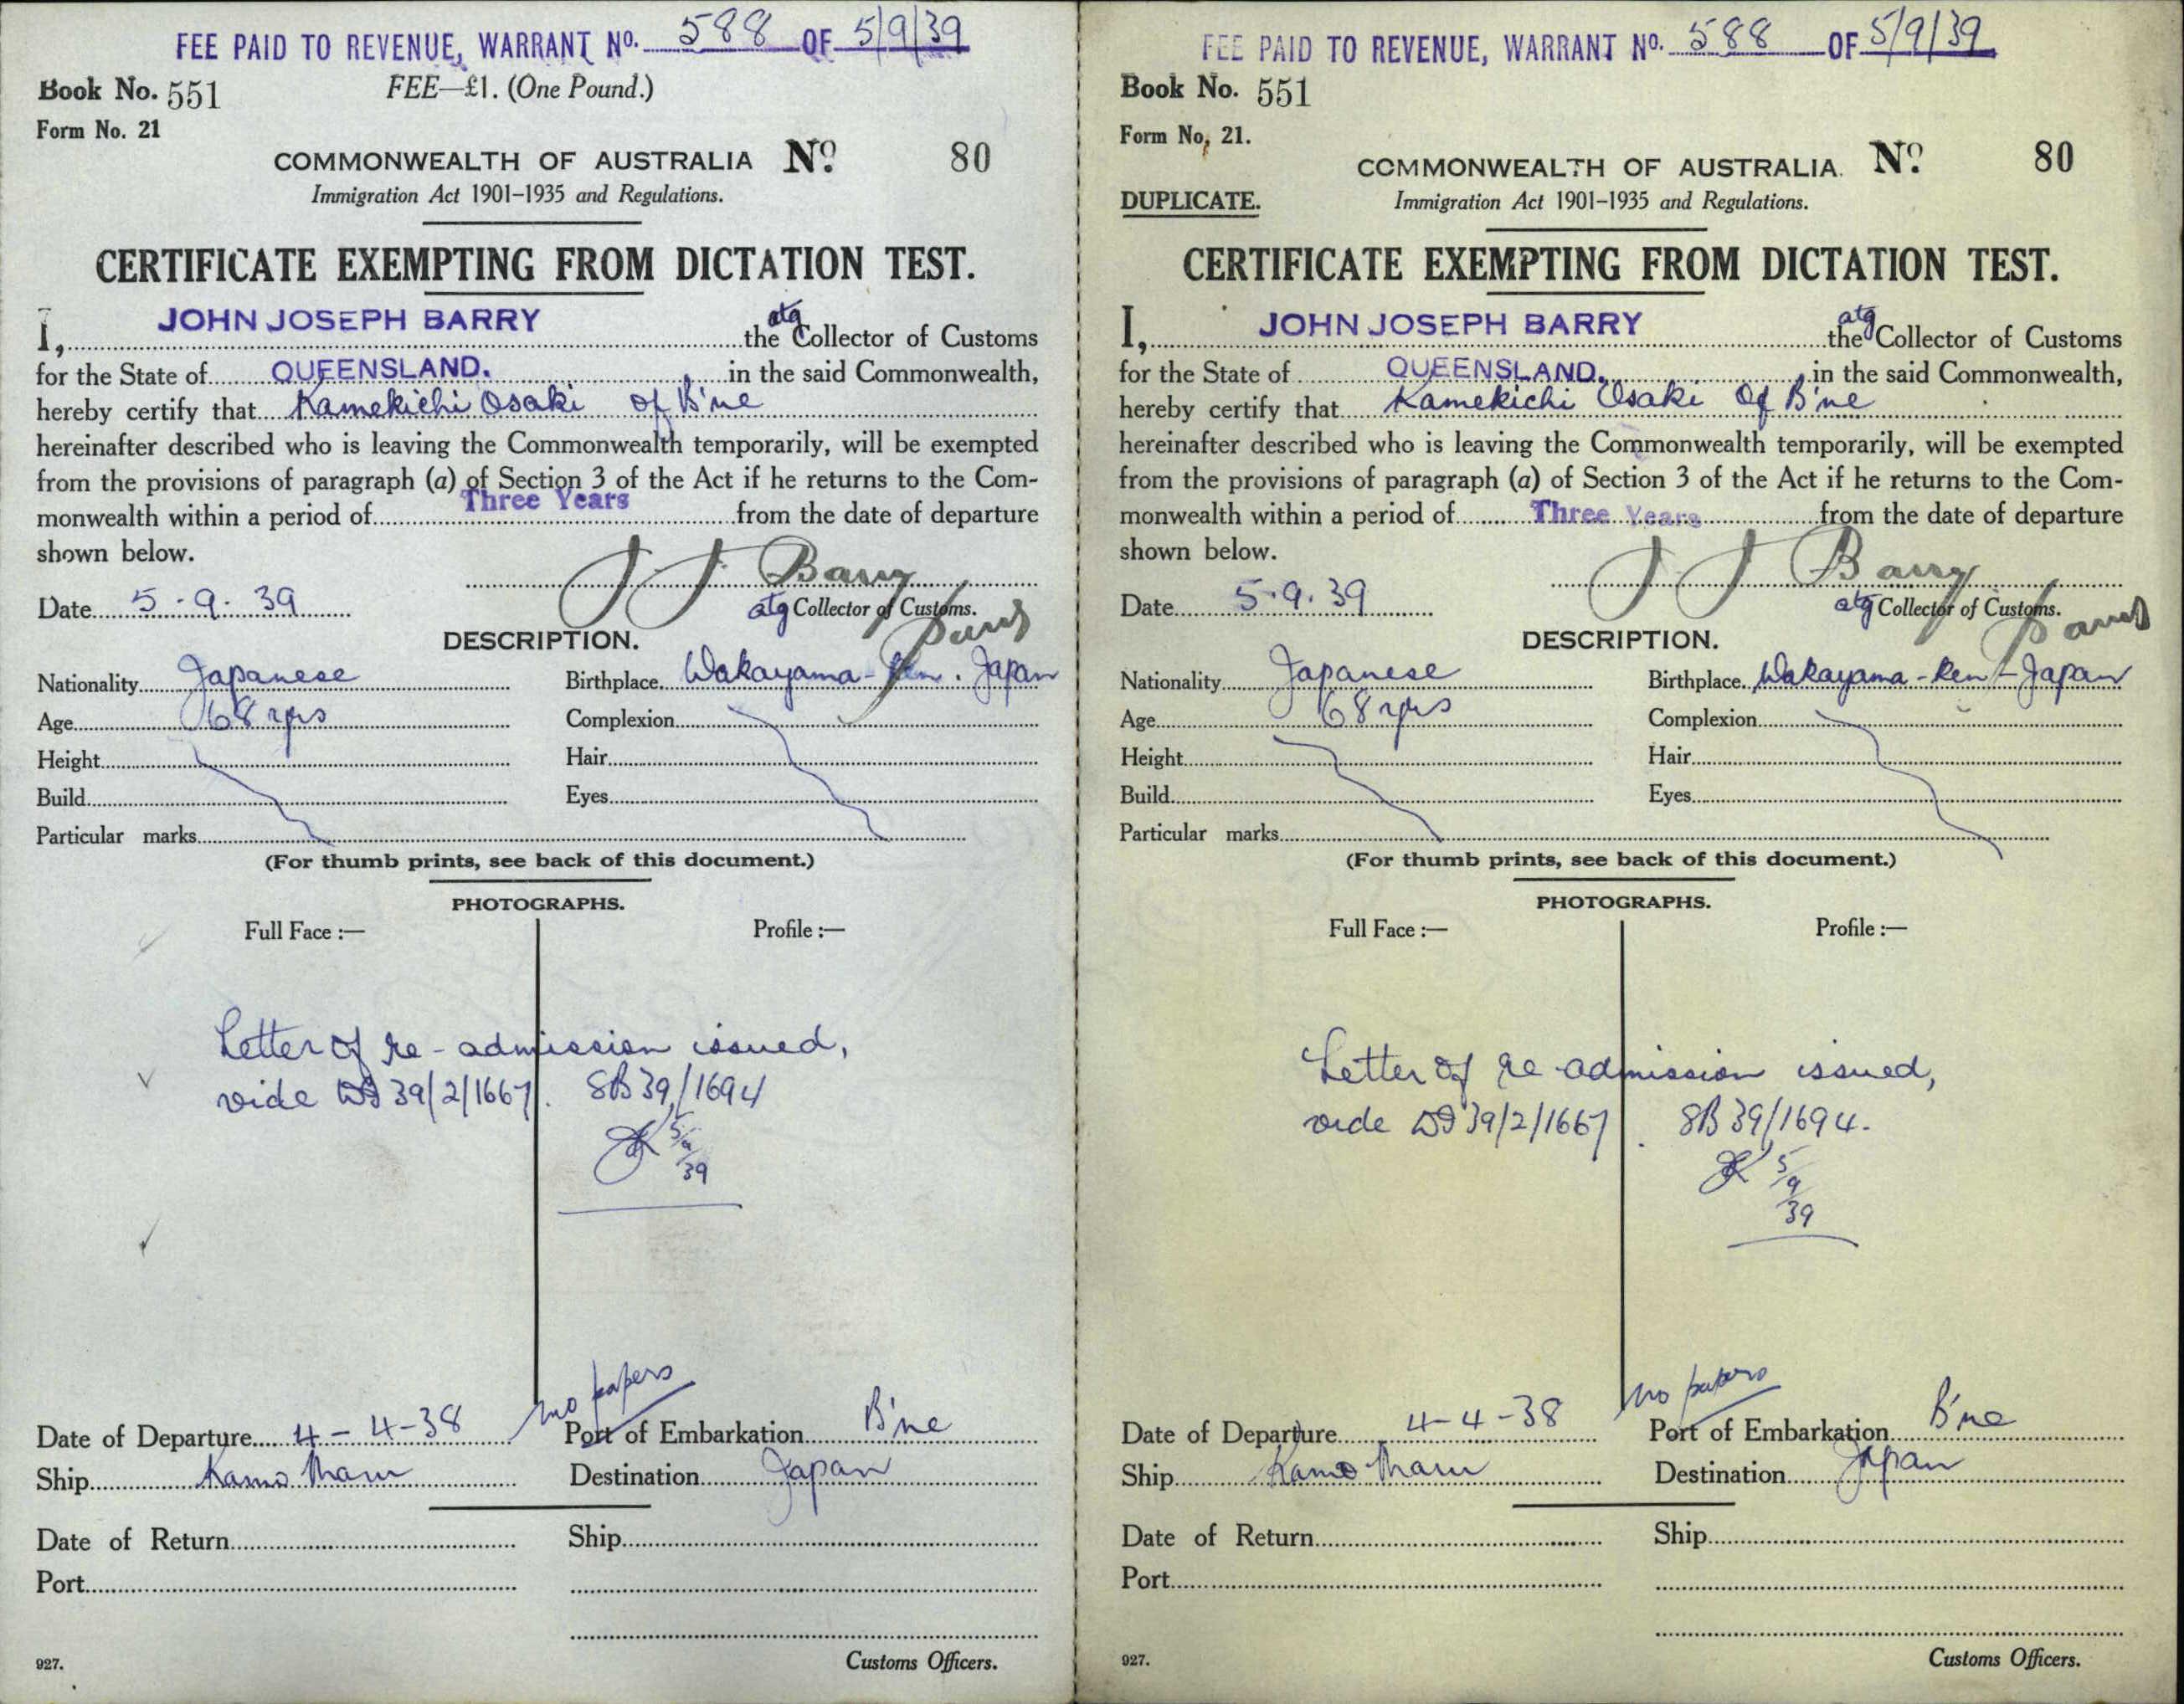 FEE PAID TO REVENUE, WARRANT No. 588 OF 5/9/39
Book No. 551 FEE—£1. (One Pound.)
Form No. 21
COMMONWEALTH OF AUSTRALIA No. 80
Immigration Act 1901-1935 and Regulations.
CERTIFICATE EXEMPTING FROM DICTATION TEST.
I, JOHN JOSEPH BARRY the atg Collector of Customs
for the State of QUEENSLAND. in the said Commonwealth,
hereby certify that Kamekichi Osaki of B'ne
hereinafter described who is leaving the Commonwealth temporarily, will be exempted
from the provisions of paragraph (a) of Section 3 of the Act if he returns to the Com-
monwealth within a period of Three Years from the date of departure
shown below.
J J Barry
Date 5-9-39 atg Collector of Customs.
DESCRIPTION.
Nationality Japanese Birthplace Wakayama-Ken. Japan
Age 68 yrs Complexion
Height Hair
Build Eyes
Particular marks
(For thumb prints, see back of this document.)
PHOTOGRAPHS.
Full Face :— Profile :—
Letter of re-admission issued,
vide 39/2/1667. SB 39/1694
5/9/39
no papers
Date of Departure 4-4-38 Port of Embarkation B'ne
Ship Kamo Maru Destination Japan
Date of Return Ship
Port
927. Customs Officers.
FEE PAID TO REVENUE, WARRANT No. 588 OF 5/9/39
Book No. 551
Form No. 21.
COMMONWEALTH OF AUSTRALIA. No. 80
DUPLICATE. Immigration Act 1901-1935 and Regulations.
CERTIFICATE EXEMPTING FROM DICTATION TEST.
I, JOHN JOSEPH BARRY the atg Collector of Customs
for the State of QUEENSLAND. in the said Commonwealth,
hereby certify that Kamekichi Osaki of B'ne
hereinafter described who is leaving the Commonwealth temporarily, will be exempted
from the provisions of paragraph (a) of Section 3 of the Act if he returns to the Com-
monwealth within a period of Three Years from the date of departure
shown below.
J J Barry
Date 5.9.39 atg Collector of Customs.
DESCRIPTION.
Nationality Japanese Birthplace Wakayama-Ken-Japan
Age 68 yrs Complexion
Height Hair
Build Eyes
Particular marks
(For thumb prints, see back of this document.)
PHOTOGRAPHS.
Full Face :— Profile :—
Letter of re-admission issued,
vide 39/2/1667. SB 39/1694.
5/9/39
no papers
Date of Departure 4-4-38 Port of Embarkation B'ne
Ship Kamo Maru Destination Japan
Date of Return Ship
Port
927. Customs Officers.